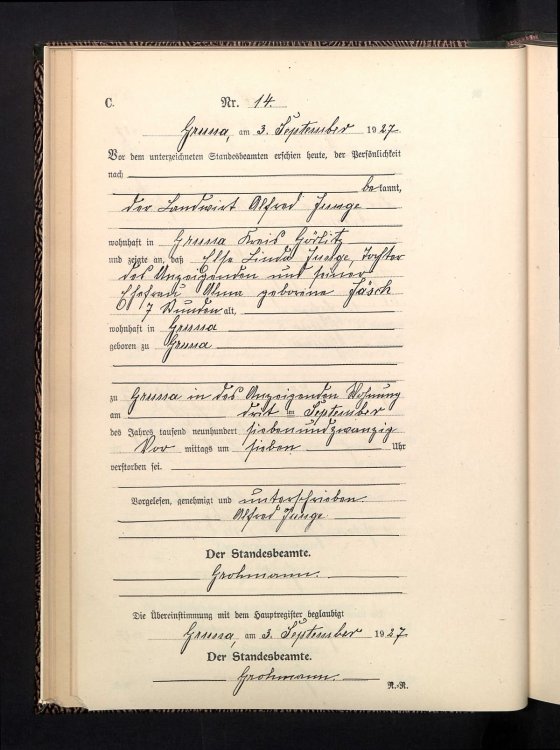 C. Nr. 14.
Gruna, am 3. September 1927
Vor dem unterzeichneten Standesbeamten erschien heute, der Persönlichkeit
nach
bekannt,
der Landwirt Alfred Junge
wohnhaft in Gruna Kreis Görlitz
und zeigte an, daß Else Linda Junge, Tochter
des Anzeigenden und seiner
Ehefrau Alma geborene Jäsch
7 Stunden alt,
wohnhaft in Gruna
geboren zu Gruna
zu Gruna in des Anzeigenden Wohnung
am drit im September
des Jahres tausend neunhundert siebenundzwanzig
Vor mittags um sieben Uhr
verstorben sei.
Vorgelesen, genehmigt und unterschrieben.
Alfred Junge
Der Standesbeamte.
Grohmann.
Die Übereinstimmung mit dem Hauptregister beglaubigt
Gruna, am 3. September 1927
Der Standesbeamte.
Grohmann.
R.-R.